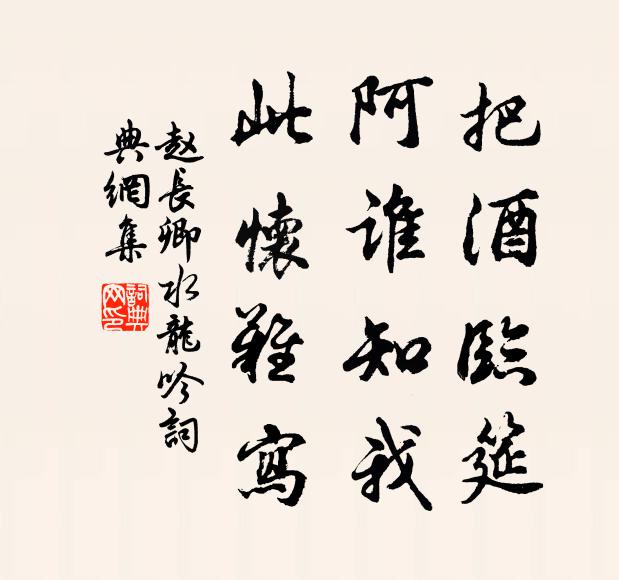 把酒臨筵
阿谁知我
此懷難寫
赵長卿水龍吟詞
典網集
詞典网印